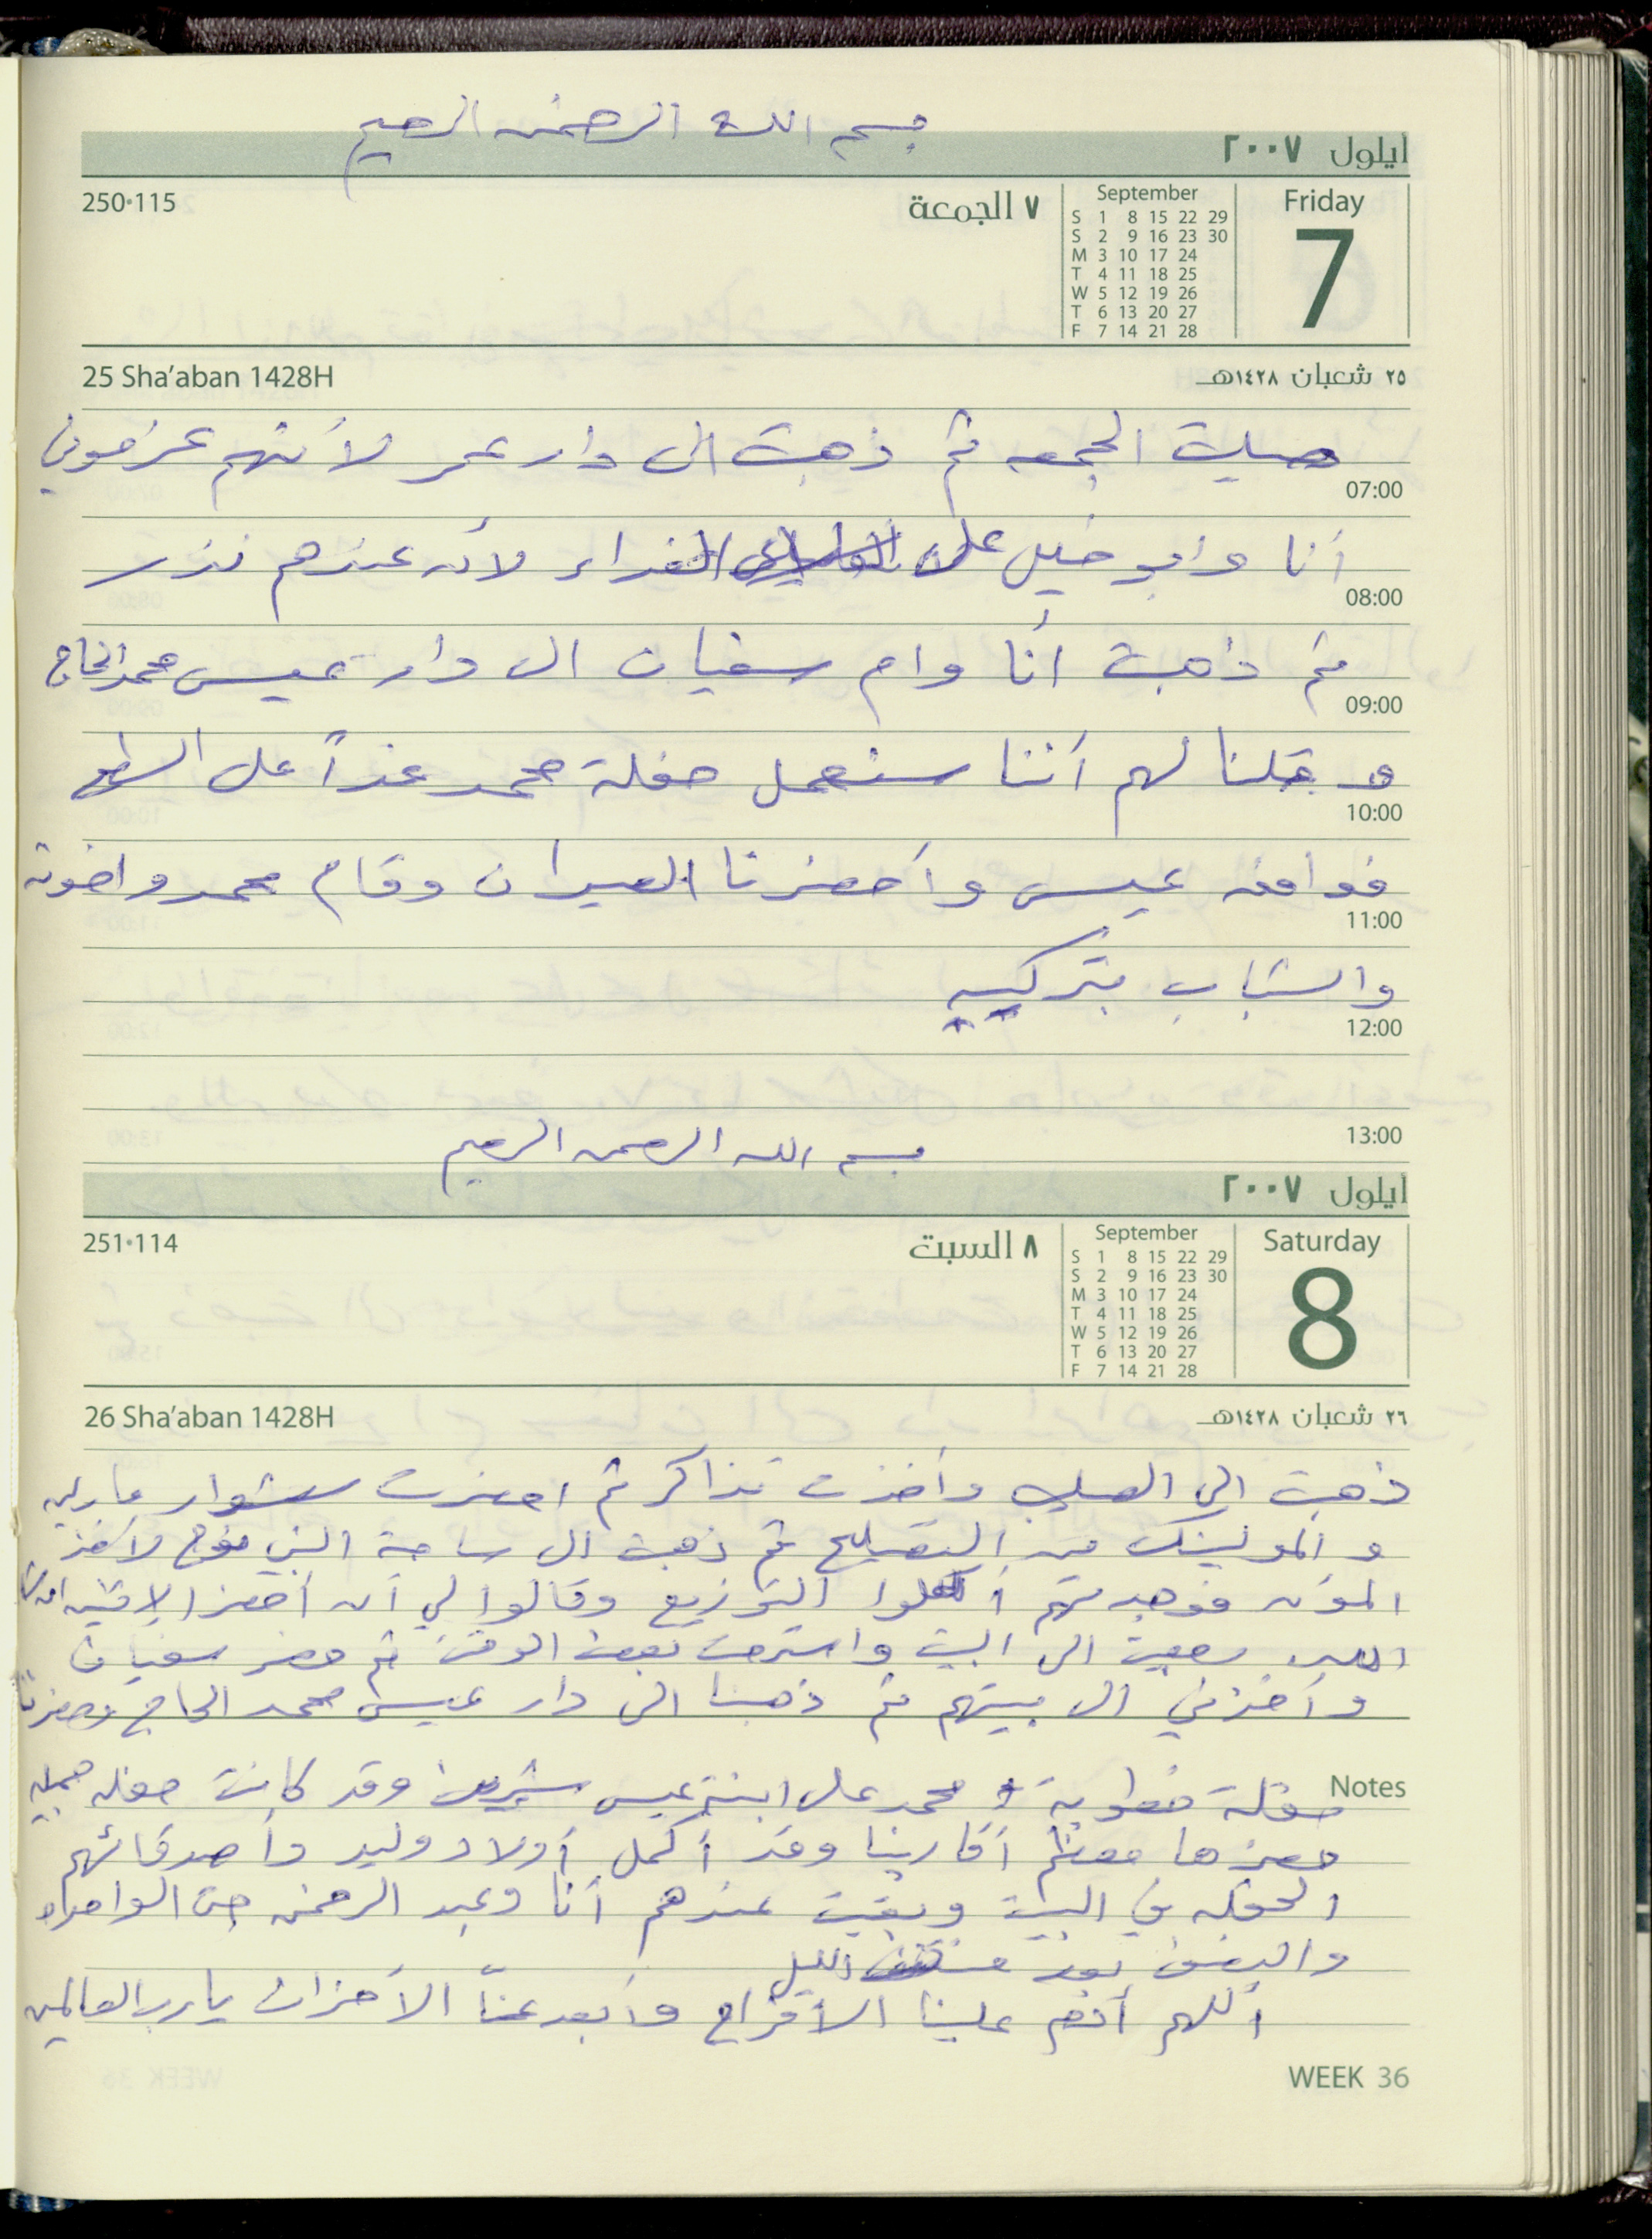 بسم الله الرحمن الرحيم
ايلول ٢٠٠٧
250•115
٧ الجمعة
September
S 1 8 15 22 29
S 2 9 16 23 30
M 3 10 17 24
T 4 11 18 25
W 5 12 19 26
T 6 13 20 27
F 7 14 21 28
Friday
7
25 Sha'aban 1428H
٢٥ شعبان ١٤٢٨هـ
صليت الجمعه ثم ذهبت الى دار عمر لأنهم عزموني
07:00
أنا وابو خليل على الغداء لأنه عندهم نذر
08:00
ثم ذهبت أنا وام سفيان الى دار عيسى محمد الحاج
09:00
و قلنا لهم أننا سنعمل حفلة محمد غداً على السطح
10:00
فوافق عيسى وأحضرنا الصيوان وقام محمد واخوته
11:00
والشباب بتركيبه
12:00
13:00
بسم الله الرحمن الرحيم
ايلول ٢٠٠٧
251•114
٨ السبت
September
S 1 8 15 22 29
S 2 9 16 23 30
M 3 10 17 24
T 4 11 18 25
W 5 12 19 26
T 6 13 20 27
F 7 14 21 28
Saturday
8
26 Sha'aban 1428H
٢٦ شعبان ١٤٢٨هـ
ذهبت الى وأخذت تذاكر ثم احضرت سشوار
و المولينكس من التصليح ثم ذهبت الى ساحة لآخذ
المؤن فوجدتهم أكملوا التوزيع وقالوا لي أن أحضر الاثنين
رجعت الى البيت واسترحت بعض الوقت ثم حضر سفيان
وأخذني الى بيتهم ثم ذهبنا الى دار عيسى محمد الحاج وحضرنا
Notes
حفلة خطوبة محمد على ابنة عيسى شيرين وقد كانت حفله جميله
حضرها معظم أقاربنا وقد أكمل أولاد وليد وأصدقائهم
الحفله في البيت وبقيت عندهم أنا وعبد الرحمن حتى الواحده
والنصف بعد منتصف الليل
اللهم أدم علينا الأفراح وأبعد عنّا الأحزان يا رب العالمين
WEEK 36